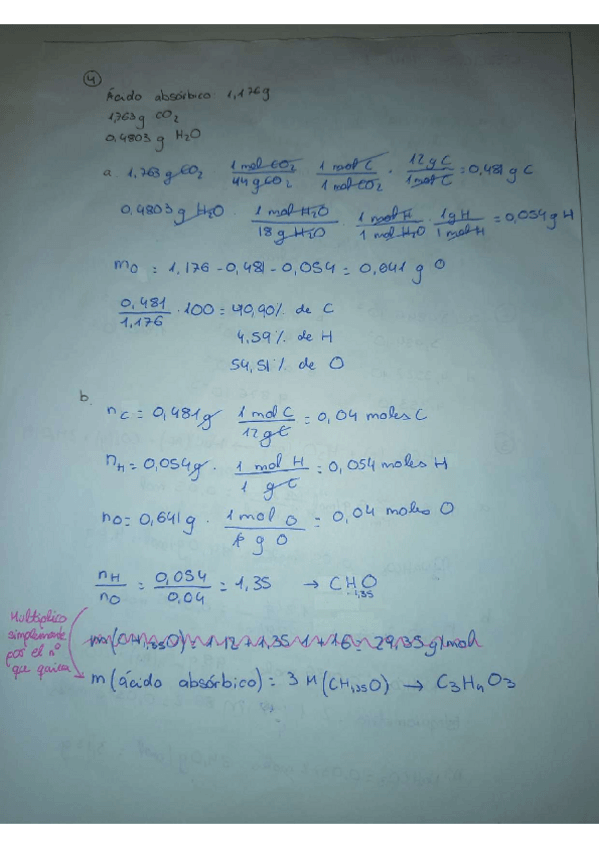 4
Ácido absórbico: 1,176g
1,763g CO2
0,4803g H2O
a. 1,763 g CO2 · 1 mol CO2 / 44 g CO2 · 1 mol C / 1 mol CO2 · 12 g C / 1 mol C = 0,481 g C
0,4803 g H2O · 1 mol H2O / 18 g H2O · 1 mol H / 1 mol H2O · 1g H / 1 mol H = 0,054 g H
mO = 1,176 - 0,481 - 0,054 = 0,641 g O
0,481 / 1,176 · 100 = 40,90% de C
4,59% de H
54,51% de O
b.
nC = 0,481g · 1 mol C / 12 g C = 0,04 moles C
nH = 0,054g · 1 mol H / 1 g C = 0,054 moles H
nO = 0,641 g · 1 mol O / g O = 0,04 moles O
nH / nO = 0,054 / 0,04 = 1,35 → CH1,35O
Multiplico
simplemente
por el nº
que quiera
m(CH1,35O) = 1·12 + 1,35·1 + 16 = 29,35 g/mol
m (ácido absórbico) = 3 M (CH1,35O) → C3H4O3